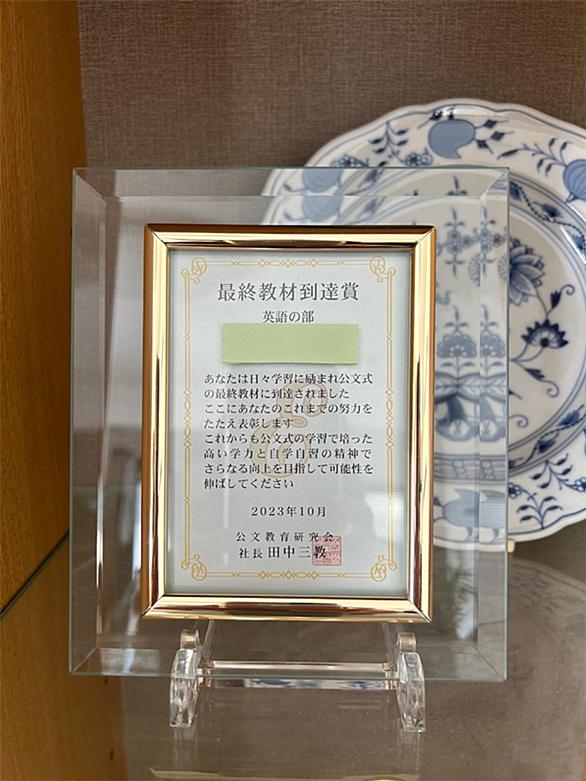 最終教材到達賞
英語の部
あなたは日々学習に励まれ公文式
の最終教材に到達されました
ここにあなたのこれまでの努力を
たたえ表彰します
これからも公文式の学習で培った
高い学力と自学自習の精神で
さらなる向上を目指して可能性を
伸ばしてください
2023年10月
公文教育研究会
社長 田中三教